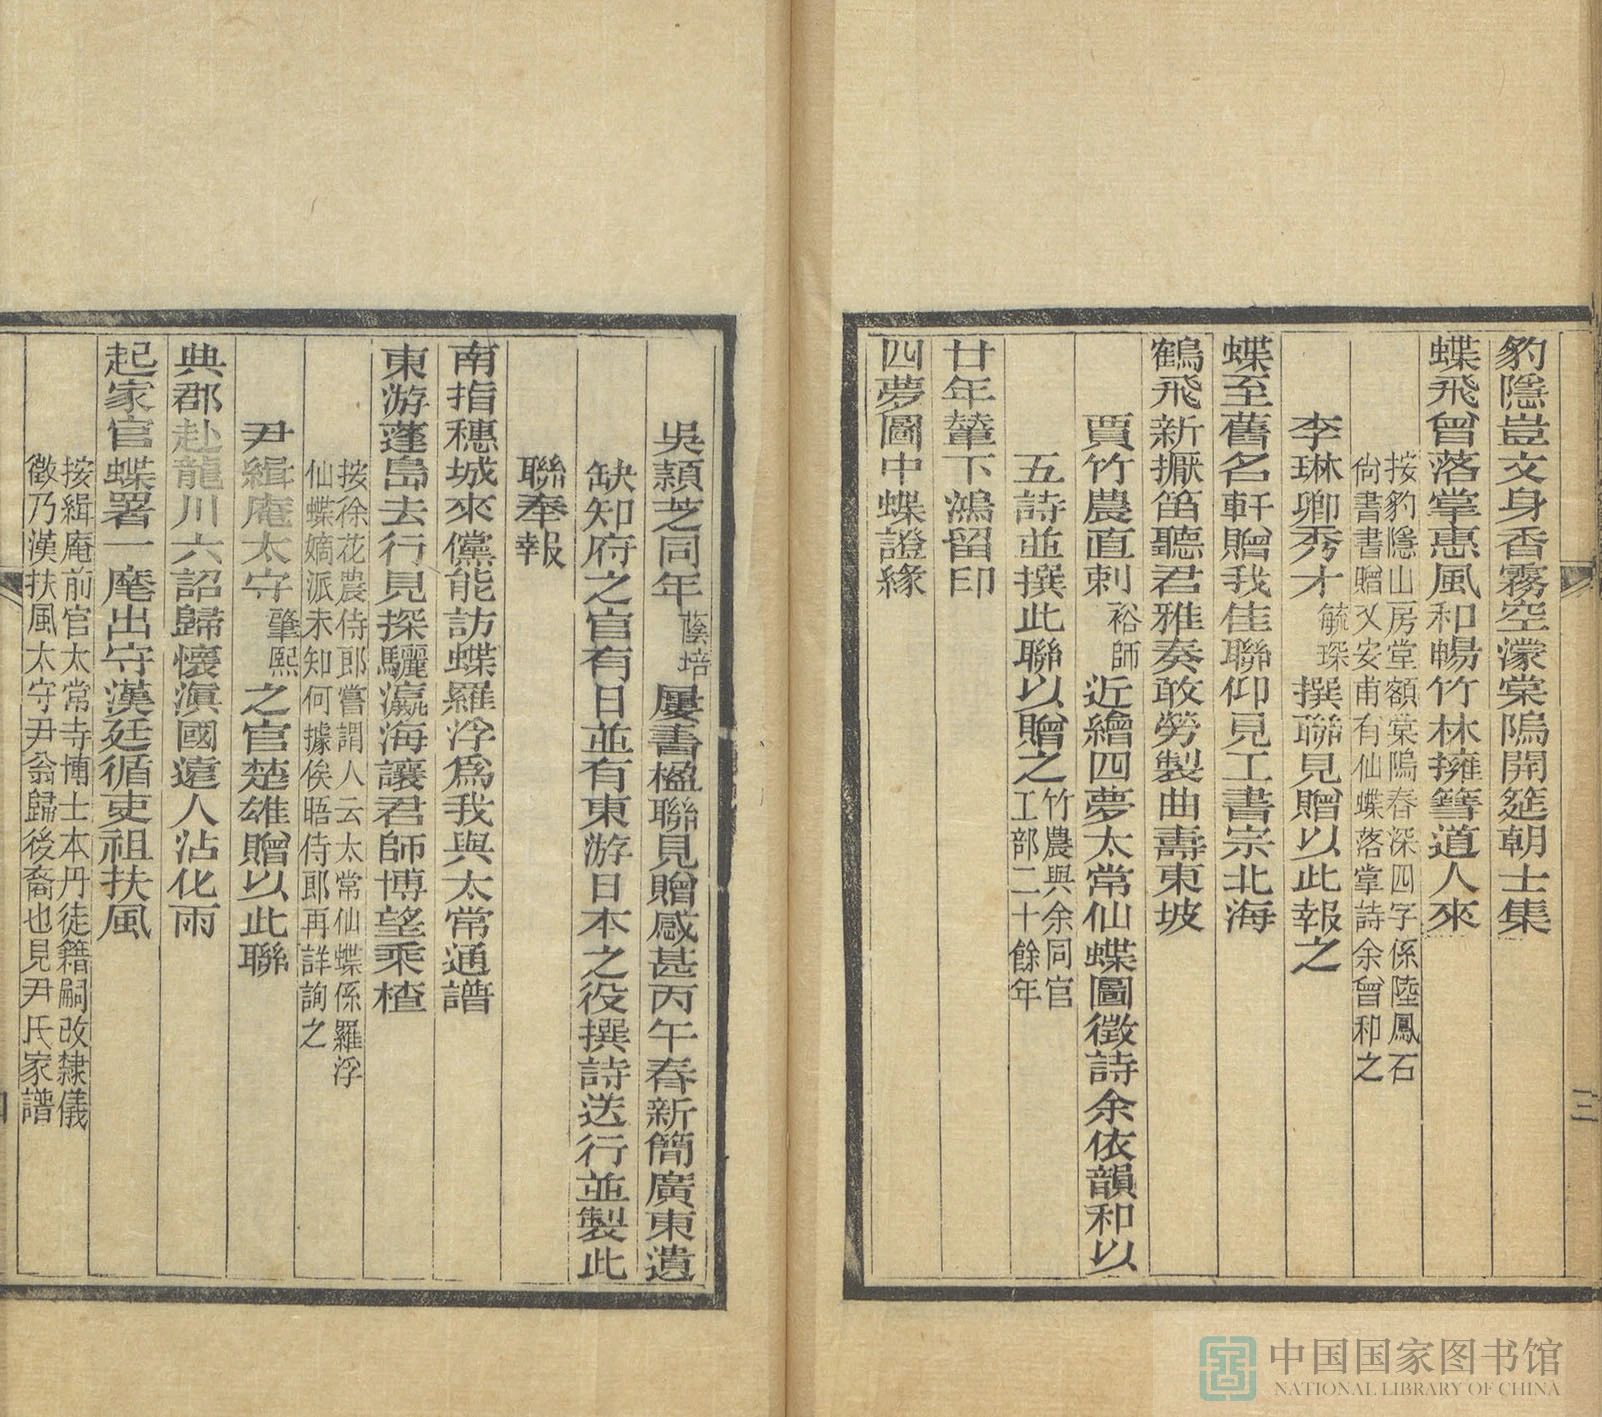 豹隱豈文身香霧空濛棠鄔開筵朝士集
蝶飛曾落掌惠風和暢竹林擁篲道人來
按豹隱山房堂額棠鄔春深四字係陸鳳石
尙書書贈又安甫有仙蝶落掌詩余曾和之
李琳卿秀才毓琛撰聯見贈以此報之
蝶至舊名軒贈我佳聯仰見工書宗北海
鶴飛新擫笛聽君雅奏敢勞製曲壽東坡
賈竹農直刺裕師近繪四夢太常仙蝶圖徵詩余依韻和以
五詩並撰此聯以贈之竹農與余同官
工部二十餘年
廿年輦下鴻留印
四夢圖中蝶證緣
三
吳頴芝同年蔭培屢書楹聯見贈感甚丙午春新簡廣東遺
缺知府之官有日並有東游日本之役撰詩送行並製此
聯奉報
南指穗城來儻能訪蝶羅浮爲我與太常通譜
東游蓬島去行見探驪瀛海讓君師博望乘楂
按徐花農侍郎嘗謂人云太常仙蝶係羅浮
仙蝶嫡派未知何據俟晤侍郎再詳詢之
尹緝庵太守肇熙之官楚雄贈以此聯
典郡赴龍川六詔歸懷滇國遠人沾化雨
起家官蝶署一麾出守漢廷循吏祖扶風
按緝庵前官太常寺博士本丹徒籍嗣改隸儀
徵乃漢扶風太守尹翁歸後裔也見尹氏家譜
中国国家图书馆
NATIONAL LIBRARY OF CHINA